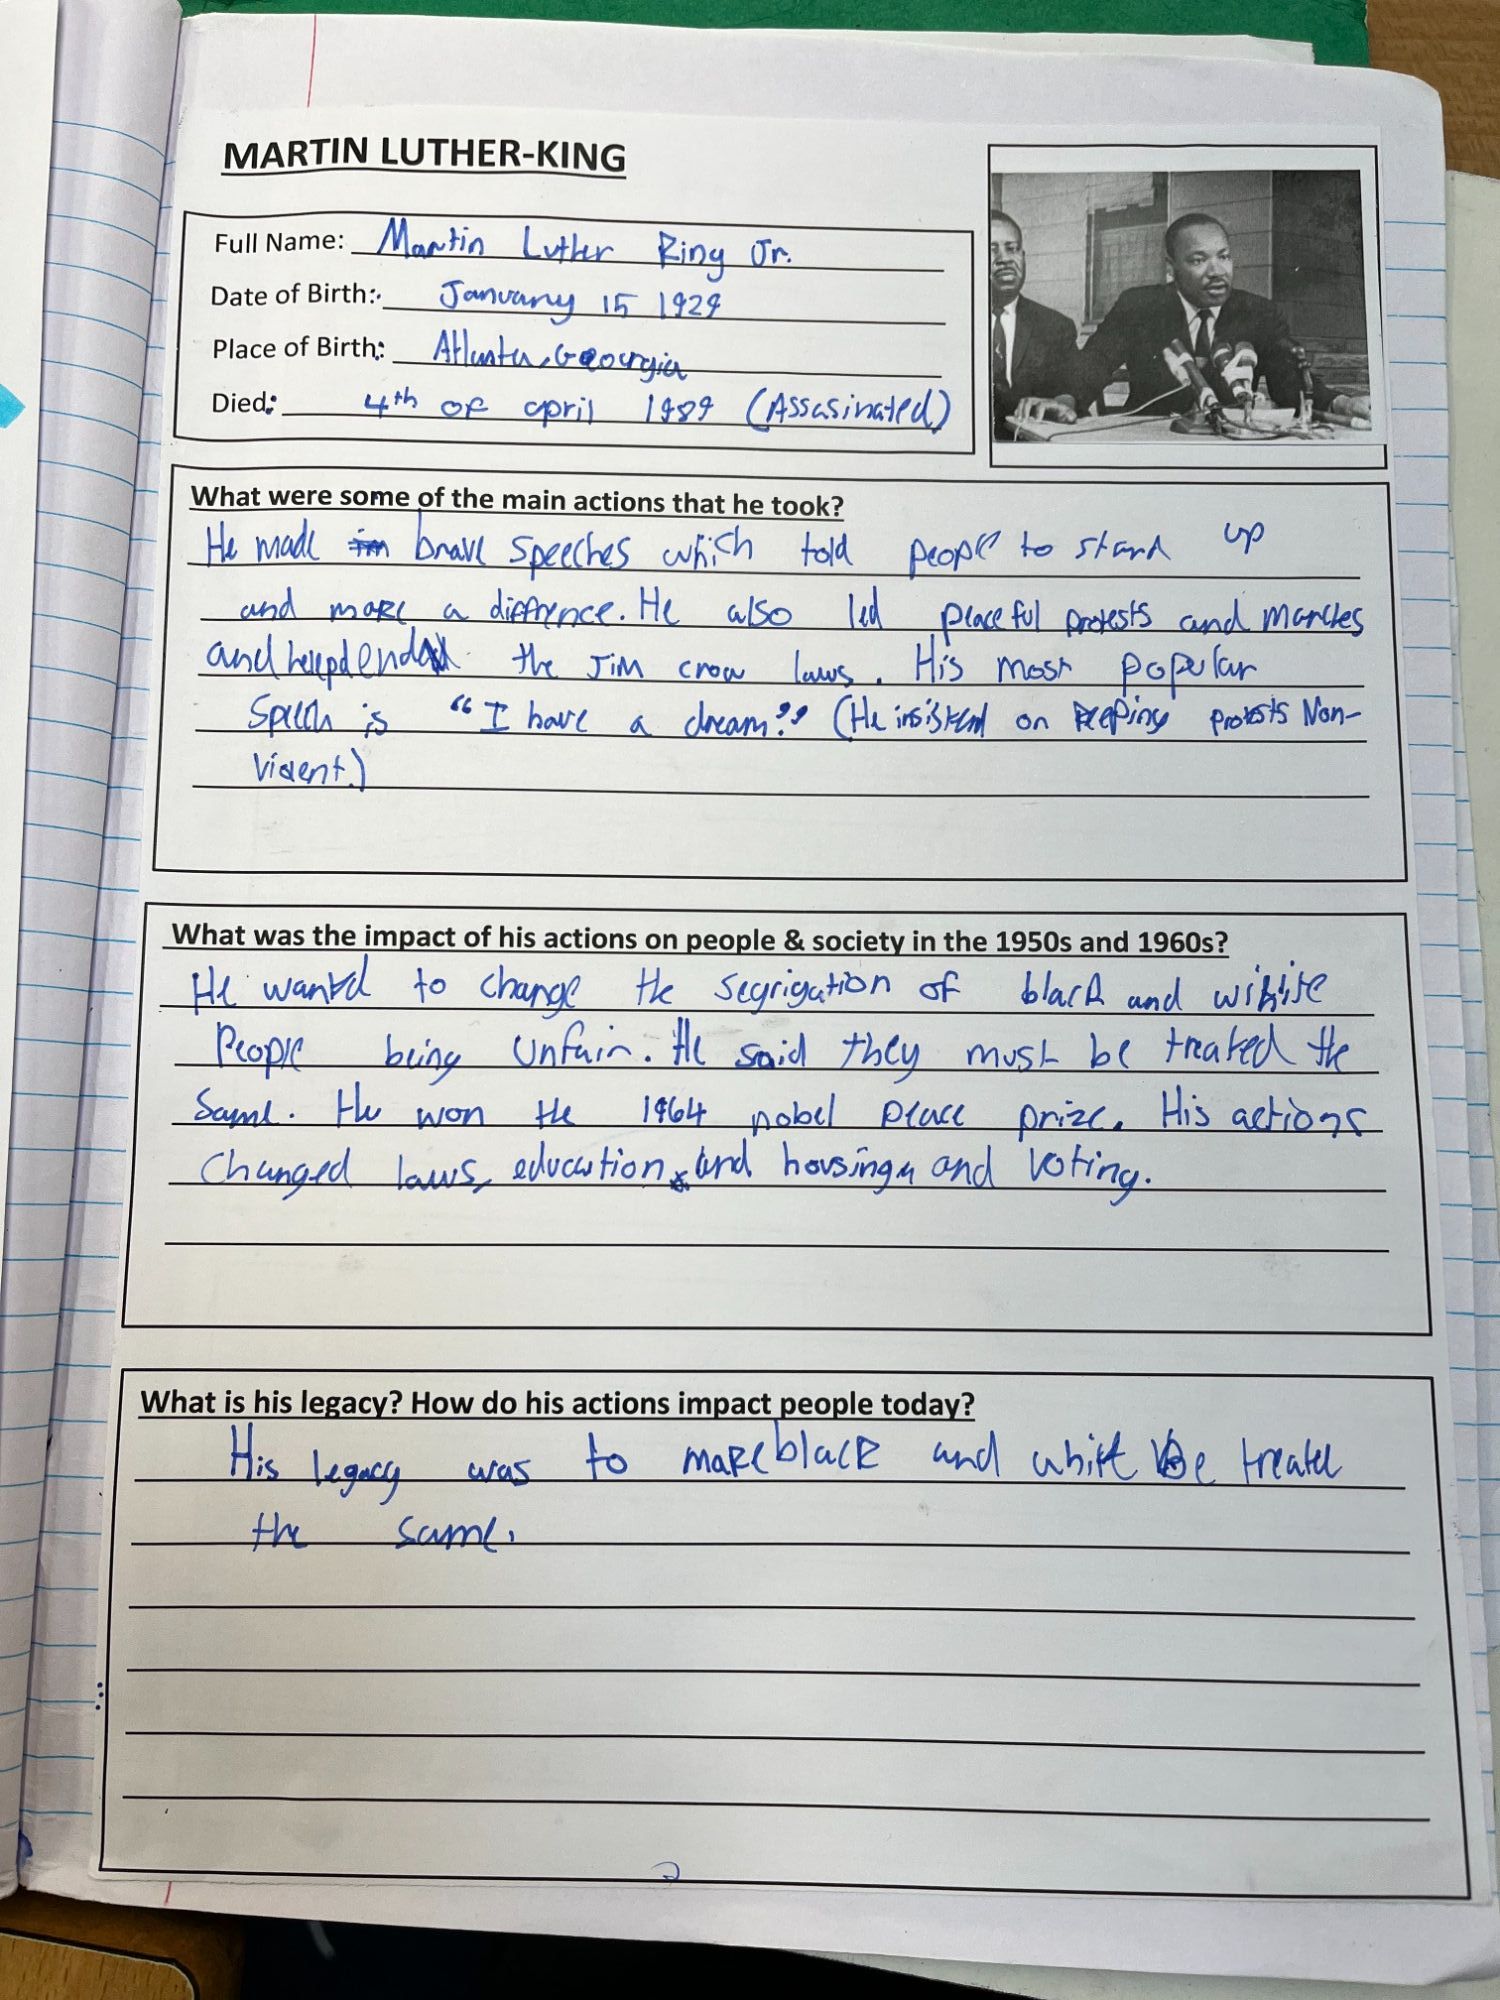 MARTIN LUTHER-KING
Full Name: Martin Luther King Jr.
Date of Birth: January 15 1929
Place of Birth: Atlanta, Georgia
Died: 4th of april 1989 (Assasinated)
What were some of the main actions that he took?
He made brave speeches which told people to stand up
and make a diffrence. He also led peaceful protests and marches
and the Jim crow laws. His most popular
Speech is "I have a dream" (He insisted on keeping protests Non-
Violent.)
What was the impact of his actions on people & society in the 1950s and 1960s?
He wanted to change the segrigation of black and
People being unfair. He said they must be treated the
Same. He won the 1964 nobel peace prize. His actions
Changed laws, education and housing and voting.
What is his legacy? How do his actions impact people today?
His legacy was to make black and white be treated
the same.